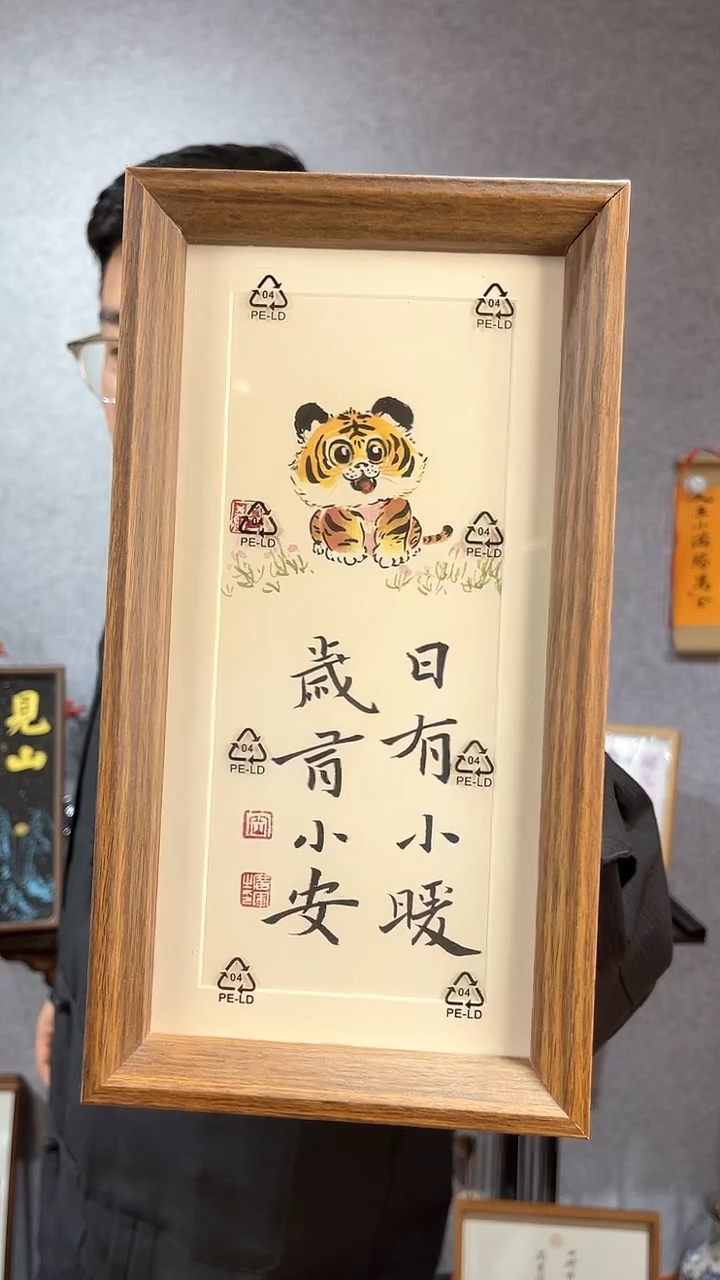 日有小暖
歲有小安
04
PE-LD
04
PE-LD
04
PE-LD
04
PE-LD
04
PE-LD
04
PE-LD
04
PE-LD
04
PE-LD
見山